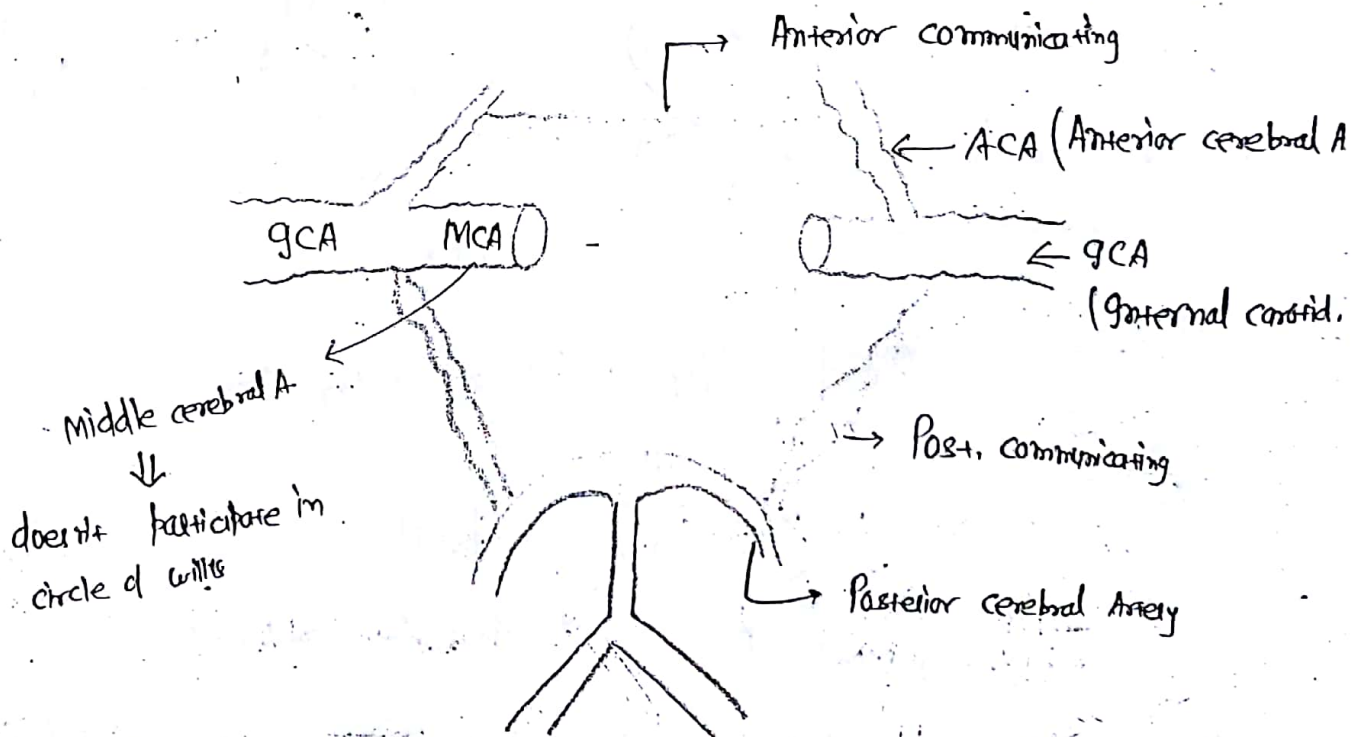 Anterior communicating
ACA (Anterior cerebral A
ICA
MCA
ICA
(Internal carotid.
Middle cerebral A
doesn't participate in
circle of willis
Post. communicating
Posterior cerebral Artery